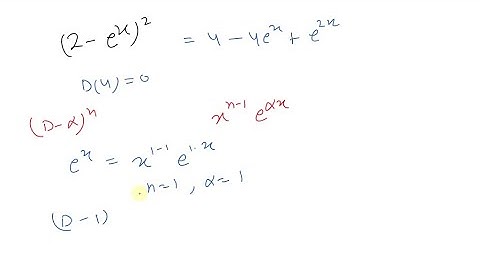 (2 - eˣ)² = 4 - 4eˣ + e²ˣ
D(4) = 0
(D - α)ⁿ xⁿ⁻¹ e^{αx}
eˣ = x¹⁻¹ e^{1·x}
n = 1 , α = 1
(D - 1)